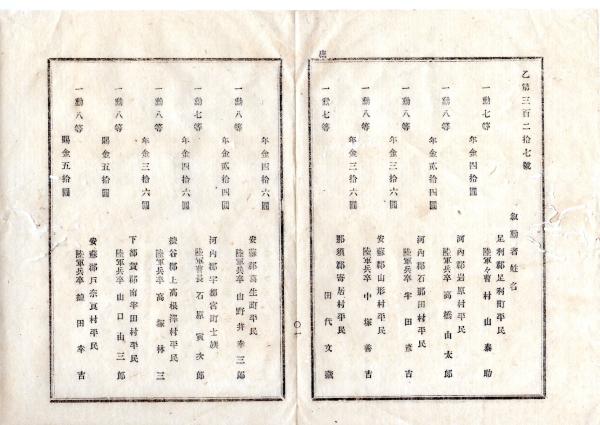 乙第三百二拾七號
叙勳者姓名
一勳七等
年金四拾圓
足利郡足利町平民
陸軍々曹 村山泰助
一勳八等
年金四拾圓
河內郡岩原村平民
陸軍兵卒 高橋山太郎
一勳八等
年金三拾六圓
河內郡石那田村平民
陸軍兵卒 半田彦吉
一勳八等
年金三拾六圓
安蘇郡山形村平民
陸軍兵卒 中塚善吉
一勳七等
那須郡寄居村平民
田代文藏
年金四拾六圓
一勳八等
年金貳拾四圓
安蘇郡葛生町平民
陸軍兵卒 山野井幸三郎
一勳七等
年金四拾六圓
河內郡宇都宮町士族
陸軍曹長 石原寅次郎
一勳八等
年金三拾六圓
塩谷郡上高根澤村平民
陸軍兵卒 高塚林三
一勳八等
賜金五拾圓
下都賀郡南半田村平民
陸軍兵卒 山口由三郎
一勳八等
賜金五拾圓
安蘇郡戶奈良村平民
陸軍兵卒 田幸吉